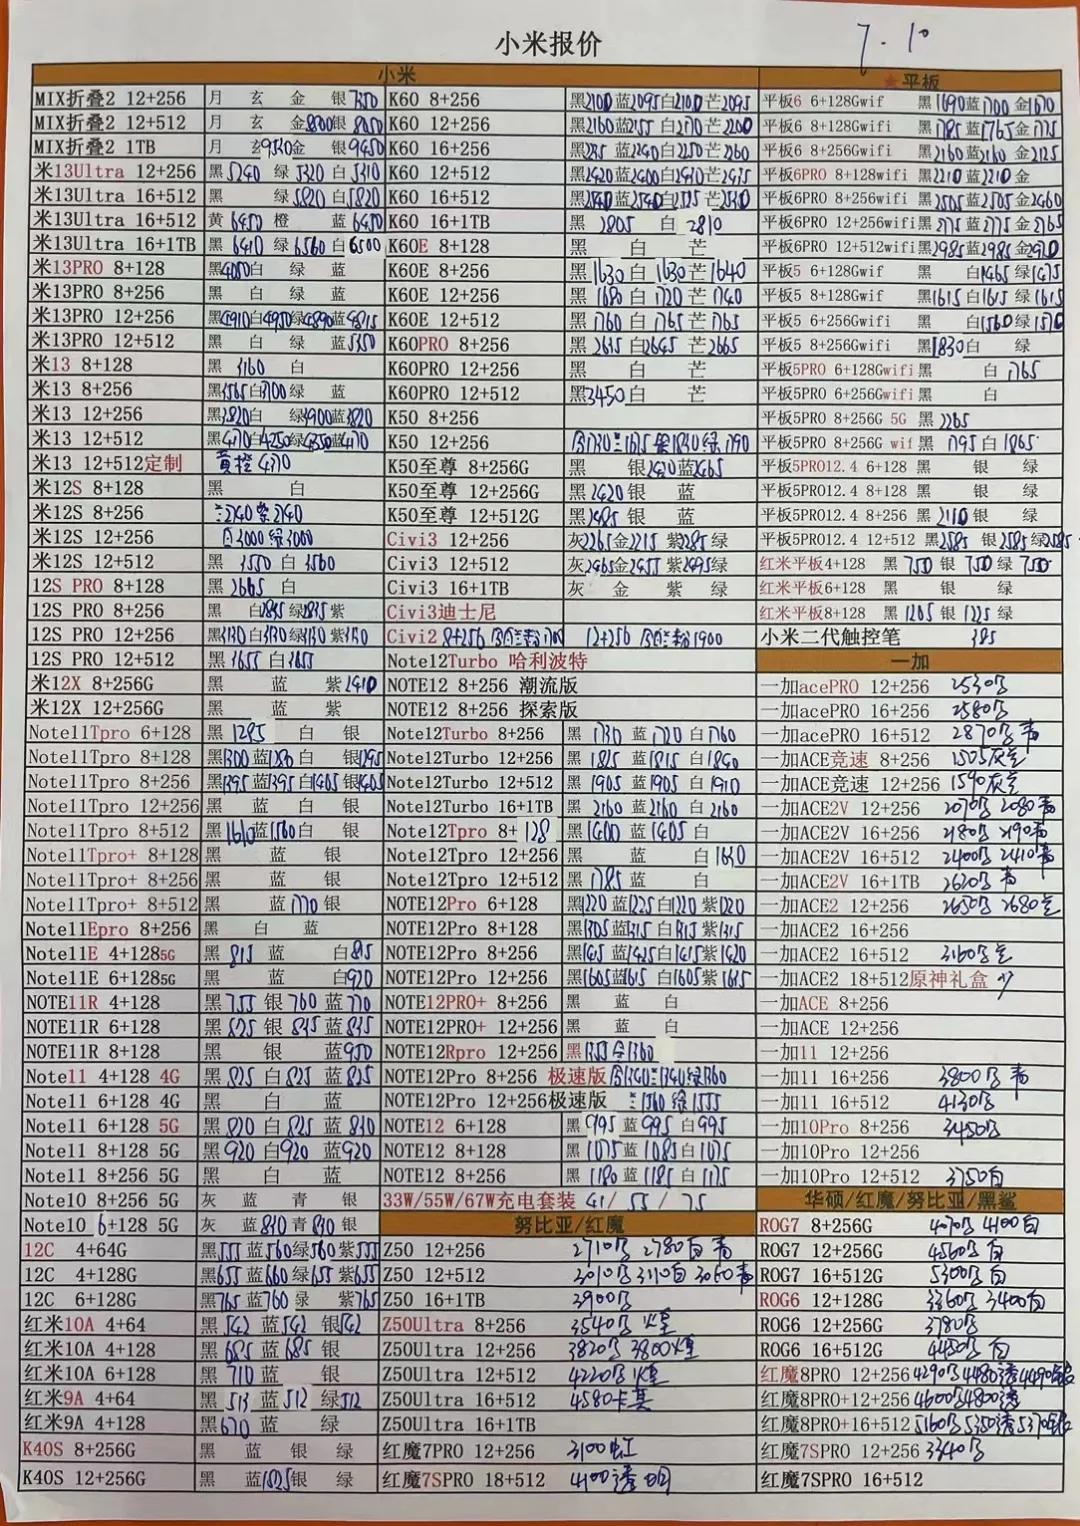 7.10
小米报价
小米
★平板
MIX折叠2 12+256 月 玄 金 银7350
K60 8+256 黑2100蓝2095白2100芒2095
平板6 6+128Gwif 黑1690蓝1700金1670
MIX折叠2 12+512 月 玄 金8000银8050
K60 12+256 黑2160蓝2155白2170芒2200
平板6 8+128Gwifi 黑1785蓝1765金1775
MIX折叠2 1TB 月 玄9530金 银9450
K60 16+256 蓝2240白2250芒2260
平板6 8+256Gwifi 黑2160蓝2160金2125
米13Ultra 12+256 黑5240绿5320白5310
K60 12+512 黑2420蓝2400
平板6PRO 8+128wifi 黑2210蓝2210金
米13Ultra 16+512 黑 绿5820白5820
K60 16+512
平板6PRO 8+256wifi 黑2505蓝2505金2460
米13Ultra 16+512 黄6450橙 蓝6450
K60 16+1TB 黑2805白2810
平板6PRO 12+256wifi 黑2775蓝2775金2765
米13Ultra 16+1TB 黑6410绿6560白6500
K60E 8+128 黑 白 芒
平板6PRO 12+512wifi 黑2985蓝2985金2970
米13PRO 8+128 黑4050白 绿 蓝
K60E 8+256 黑1630白1630芒1640
平板5 6+128Gwif 黑 白1465绿1475
米13PRO 8+256 黑 白 绿 蓝
K60E 12+256 黑1680白1720芒1740
平板5 8+128Gwif 黑1615白1615绿1615
米13PRO 12+256 黑4910白4950绿4890蓝4815
K60E 12+512 黑1760白1765芒1765
平板5 6+256Gwifi 黑 白1560绿1570
米13PRO 12+512 黑 白 绿 蓝5350
K60PRO 8+256 黑2635白2645芒2665
平板5 8+256Gwifi 黑1830白 绿
米13 8+128 黑3160 白
K60PRO 12+256 黑 白 芒
平板5PRO 6+128Gwifi黑 白1765
米13 8+256 黑3565白3700绿 蓝
K60PRO 12+512 黑3450白 芒
平板5PRO 6+256Gwifi黑 白
米13 12+256 黑3820白 绿3900蓝3820
K50 8+256
平板5PRO 8+256G 5G 黑2265
米13 12+512 黑4170白4250绿4350蓝4170
K50 12+256 白1730兰1615紫1830绿1790
平板5PRO 8+256G wif 黑1795白1865
米13 12+512定制 黄橙4370
K50至尊 8+256G 黑 银2420蓝2465
平板5PRO12.4 6+128 黑 银 绿
米12S 8+128 黑 白
K50至尊 12+256G 黑2420银 蓝
平板5PRO12.4 8+128 黑 银 绿
米12S 8+256 兰2740紫2740
K50至尊 12+512G 黑2485银 蓝
平板5PRO12.4 8+256 黑2110银 绿
米12S 12+256 白3000绿3000
Civi3 12+256 灰2265金2215紫2285绿
平板5PRO12.4 12+512 黑2585银2585绿2585
米12S 12+512 黑3550白3560
Civi3 12+512 灰2465金2455紫2495绿
红米平板4+128 黑750银750绿750
12S PRO 8+128 黑2665白
Civi3 16+1TB 灰 金 紫 绿
红米平板6+128 黑 银 绿
12S PRO 8+256 黑 白2845绿2835紫
Civi3迪士尼
红米平板8+128 黑1205银1225绿
12S PRO 12+256 黑3130白3130绿3130紫3130
Civi2 8+256 12+256 1900
小米二代触控笔 385
12S PRO 12+512 黑3655白3655
Note12Turbo 哈利波特
一加
米12X 8+256G 黑 蓝 紫2410
NOTE12 8+256 潮流版
一加acePRO 12+256 2530乌
米12X 12+256G 黑 蓝 紫
NOTE12 8+256 探索版
一加acePRO 16+256 2580乌
Note11Tpro 6+128 黑1285 白 银
Note12Turbo 8+256 黑1730蓝1720白1760
一加acePRO 16+512 2870乌青
Note11Tpro 8+128 黑1300蓝1280白 银1295
Note12Turbo 12+256 黑1825蓝1815白1840
一加ACE竞速 8+256 1505灰兰
Note11Tpro 8+256 黑1395蓝1395白1405银1405
Note12Turbo 12+512 黑1905蓝1905白1910
一加ACE竞速 12+256 1590灰兰
Note11Tpro 12+256 黑 蓝 白 银
Note12Turbo 16+1TB 黑2160蓝2160白2160
一加ACE2V 12+256 2070乌 2080青
Note11Tpro 8+512 黑1610蓝1560白 银
Note12Tpro 8+128 黑1400蓝1405白
一加ACE2V 16+256 2180乌 2190青
Note11Tpro+ 8+128 黑 蓝 银
Note12Tpro 12+256 黑 蓝 白1630
一加ACE2V 16+512 2400乌 2410青
Note11Tpro+ 8+256 黑 蓝 银
Note12Tpro 12+512 黑1785蓝 白
一加ACE2V 16+1TB 2620乌 青
Note11Tpro+ 8+512 黑 蓝1770银
NOTE12Pro 6+128 黑1220蓝1225白1220紫1220
一加ACE2 12+256 2650乌 2680兰
Note11Epro 8+256 黑 白 蓝
NOTE12Pro 8+128 黑1305蓝1315白1315紫1315
一加ACE2 16+256
Note11E 4+1285G 黑815蓝 白815
NOTE12Pro 8+256 黑1415蓝1425白1415紫1420
一加ACE2 16+512 3160乌兰
Note11E 6+1285G 黑 蓝 白920
NOTE12Pro 12+256 黑1605蓝1615白1605紫1615
一加ACE2 18+512原神礼盒
NOTE11R 4+128 黑755银760蓝770
NOTE12PRO+ 8+256 黑 蓝 白
一加ACE 8+256
NOTE11R 6+128 黑825银835蓝835
NOTE12PRO+ 12+256 黑 蓝 白
一加ACE 12+256
NOTE11R 8+128 黑 银 蓝950
NOTE12Rpro 12+256 黑1355金1360
一加11 12+256
Note11 4+128 4G 黑825白825蓝825
NOTE12Pro 8+256 极速版 白1340兰1340绿1360
一加11 16+256 3800乌 青
Note11 6+128 4G 黑 白 蓝
NOTE12Pro 12+256极速版 兰1560绿1555
一加11 16+512 4130乌
Note11 6+128 5G 黑820白825蓝830
NOTE12 6+128 黑995蓝995白995
一加10Pro 8+256 3450乌
Note11 8+128 5G 黑920白920蓝920
NOTE12 8+128 黑1075蓝1085白1075
一加10Pro 12+256
Note11 8+256 5G 黑 白 蓝
NOTE12 8+256 黑1180蓝1185白1175
一加10Pro 12+512 3750白
Note10 8+256 5G 灰 蓝 青 银
33W/55W/67W充电套装 41/ 55 / 75
华硕/红魔/努比亚/黑鲨
Note10 6+128 5G 灰 蓝830青830银
努比亚/红魔
ROG7 8+256G 4070乌 4100白
12C 4+64G 黑555蓝560绿560紫555
Z50 12+256 2710乌 2780白 青
ROG7 12+256G 4560乌 白
12C 4+128G 黑655蓝660绿655紫655
Z50 12+512 3010乌 3110白 3060青
ROG7 16+512G 5300乌 白
12C 6+128G 黑765蓝760绿 紫765
Z50 16+1TB 3900乌
ROG6 12+128G 3360乌 3400白
红米10A 4+64 黑542蓝542银542
Z50Ultra 8+256 3540乌 火星
ROG6 12+256G 3780乌
红米10A 4+128 黑685蓝685银
Z50Ultra 12+256 3820乌 3800火星
ROG6 16+512G 4450乌 白
红米10A 6+128 黑710蓝 银
Z50Ultra 12+512 4220乌 火星
红魔8PRO 12+256 4290乌4480透4490
红米9A 4+64 黑513蓝512绿512
Z50Ultra 16+512 4580卡其
红魔8PRO+12+256 4600乌4800透
红米9A 4+128 黑670蓝 绿
Z50Ultra 16+1TB
红魔8PRO+16+512 5160乌5350透5370
K40S 8+256G 黑 蓝 银 绿
红魔7PRO 12+256 3100虹
红魔7SPRO 12+256 3340乌
K40S 12+256G 黑 蓝1525银 绿
红魔7SPRO 18+512 4100透明
红魔7SPRO 16+512